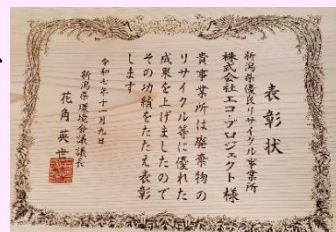 表彰状
新潟県優良リサイクル事業所
株式会社エコ・プロジェクト 様
貴事業所は廃棄物の
リサイクル等に優れた
成果を上げましたので
その功績をたたえ表彰
します
令和七年十一月九日
新潟県環境会議議長
花角英世